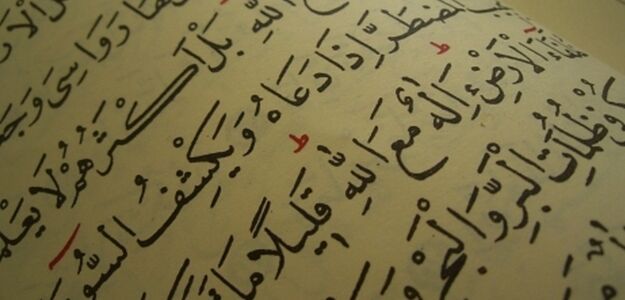 هَا رَوَاسِيَ وَجَ
اللَّهِ بَلْ أَكْثَرُهُمْ لَا يَعْلَ
الْمُضْطَرَّ إِذَا دَعَاهُ وَيَكْشِفُ السُّو
الْأَرْضِ أَئِلَٰهٌ مَعَ اللَّهِ قَلِيلًا مَا
ظُلُمَاتِ الْبَرِّ وَالْبَحْ